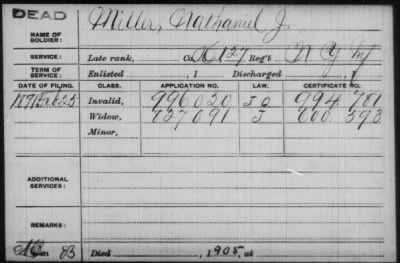 DEAD
Miller, Nathaniel J.
NAME OF SOLDIER:
SERVICE: Late rank, Co. K, 127 Reg't N Y Inf
TERM OF SERVICE: Enlisted , 1 Discharged , 1
DATE OF FILING. CLASS. APPLICATION NO. LAW. CERTIFICATE NO.
1891 Feb 25 Invalid, 996 020 J 994 781
Widow, 837 091 J 600 393
Minor,
ADDITIONAL SERVICES:
REMARKS:
83 Died , 1905, at